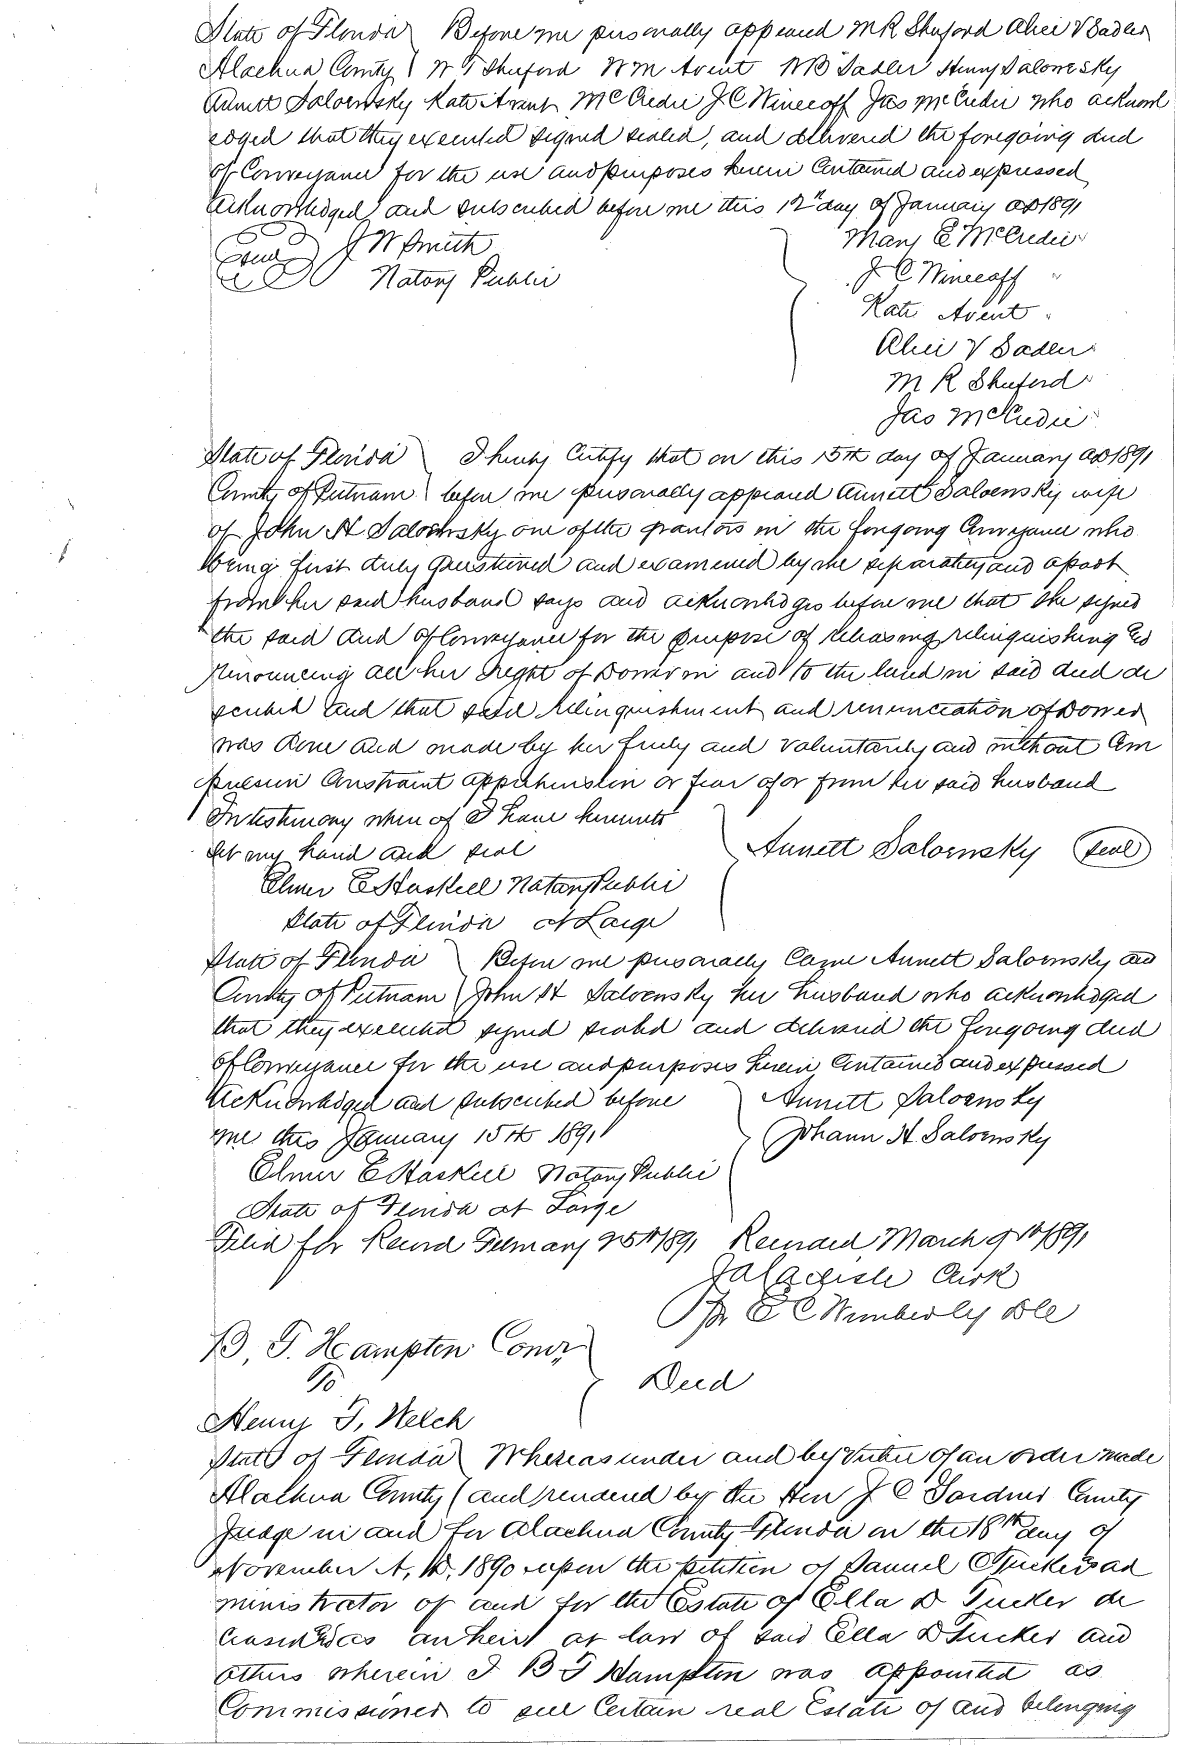 State of Florida } Before me personally appeared M R Shuford Alice V Sadler
Alachua County } W T Shuford W M Avent W B Sadler Henry Saloensky
Annett Saloensky Kate Avent McCredie J C Winecoff Jas McCredie who acknowl
edged that they executed signed sealed, and delivered the foregoing deed
of Conveyance for the use and purposes herein Contained and expressed
Acknowledged and subscribed before me this 12th day of January AD 1891
seal J W Smith
Notary Public
Mary E McCredie
J C Winecoff "
Kate Avent "
Alice V Sadler "
M R Shuford "
Jas McCredie "
State of Florida } I hereby Certify that on this 15th day of January AD 1891
County of Putnam } before me personally appeared Annett Saloensky wife
of John H Saloensky one of the grantors in the foregoing Conveyance who
being first duly questioned and examined by me separately and apart
from her said husband says and acknowledges before me that she signed
the said deed of Conveyance for the purpose of releasing relinquishing and
renouncing all her right of Dower in and to the land in said deed de
scribed and that said relinquishment and renunciation of Dower
was done and made by her freely and voluntarily and without Com
pulsion Constraint apprehension or fear of or from her said husband
In testimony where of I have hereunto
set my hand and seal
Annett Saloensky (seal)
Elmer E Haskell Notary Public
State of Florida at Large
State of Florida } Before me personally Came Annett Saloensky and
County of Putnam } John H Saloensky her husband who acknowledged
that they executed signed sealed and delivered the foregoing deed
of Conveyance for the use and purposes herein Contained and expressed
Acknowledged and subscribed before
me this January 15th 1891
Annett Saloensky
Johann H Saloensky
Elmer E Haskell Notary Public
State of Florida at Large
Filed for Record February 25th 1891 Recorded March 9th 1891
J A Carlisle Clerk
Pr E C Wimberly D C
B. F. Hampton Comr,
To } Deed
Henry F. Welch
State of Florida } Whereas under and by Virtue of an order made
Alachua County } and rendered by the Hon J C Gardner County
Judge in and for Alachua County Florida on the 18th day of
November A. D. 1890 upon the petition of Samuel C Tucker as ad
ministrator of and for the Estate of Ella D Tucker de
ceased & as an heir at law of said Ella D Tucker and
others wherein I B F Hampton was appointed as
Commissioner to sell Certain real Estate of and belonging